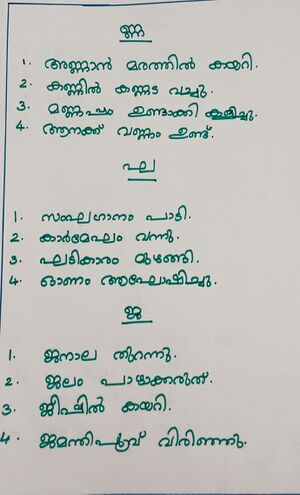 ണ്ണ
1. അണ്ണാൻ മരത്തിൽ കയറി.
2. കണ്ണിൽ കണ്ണട വച്ചു.
3. മണ്ണപ്പം ഉണ്ടാക്കി കളിച്ചു.
4. ആനക്ക് വണ്ണം ഉണ്ട്.
ഘ
1. സംഘഗാനം പാടി.
2. കാർമേഘം വന്നു.
3. ഘടികാരം മുഴങ്ങി.
4. ഓണം ആഘോഷിച്ചു.
ജ
1. ജനാല തുറന്നു.
2. ജലം പാഴാക്കരുത്.
3. ജീപ്പിൽ കയറി.
4. ജമന്തിപ്പൂവ് വിരിഞ്ഞു.